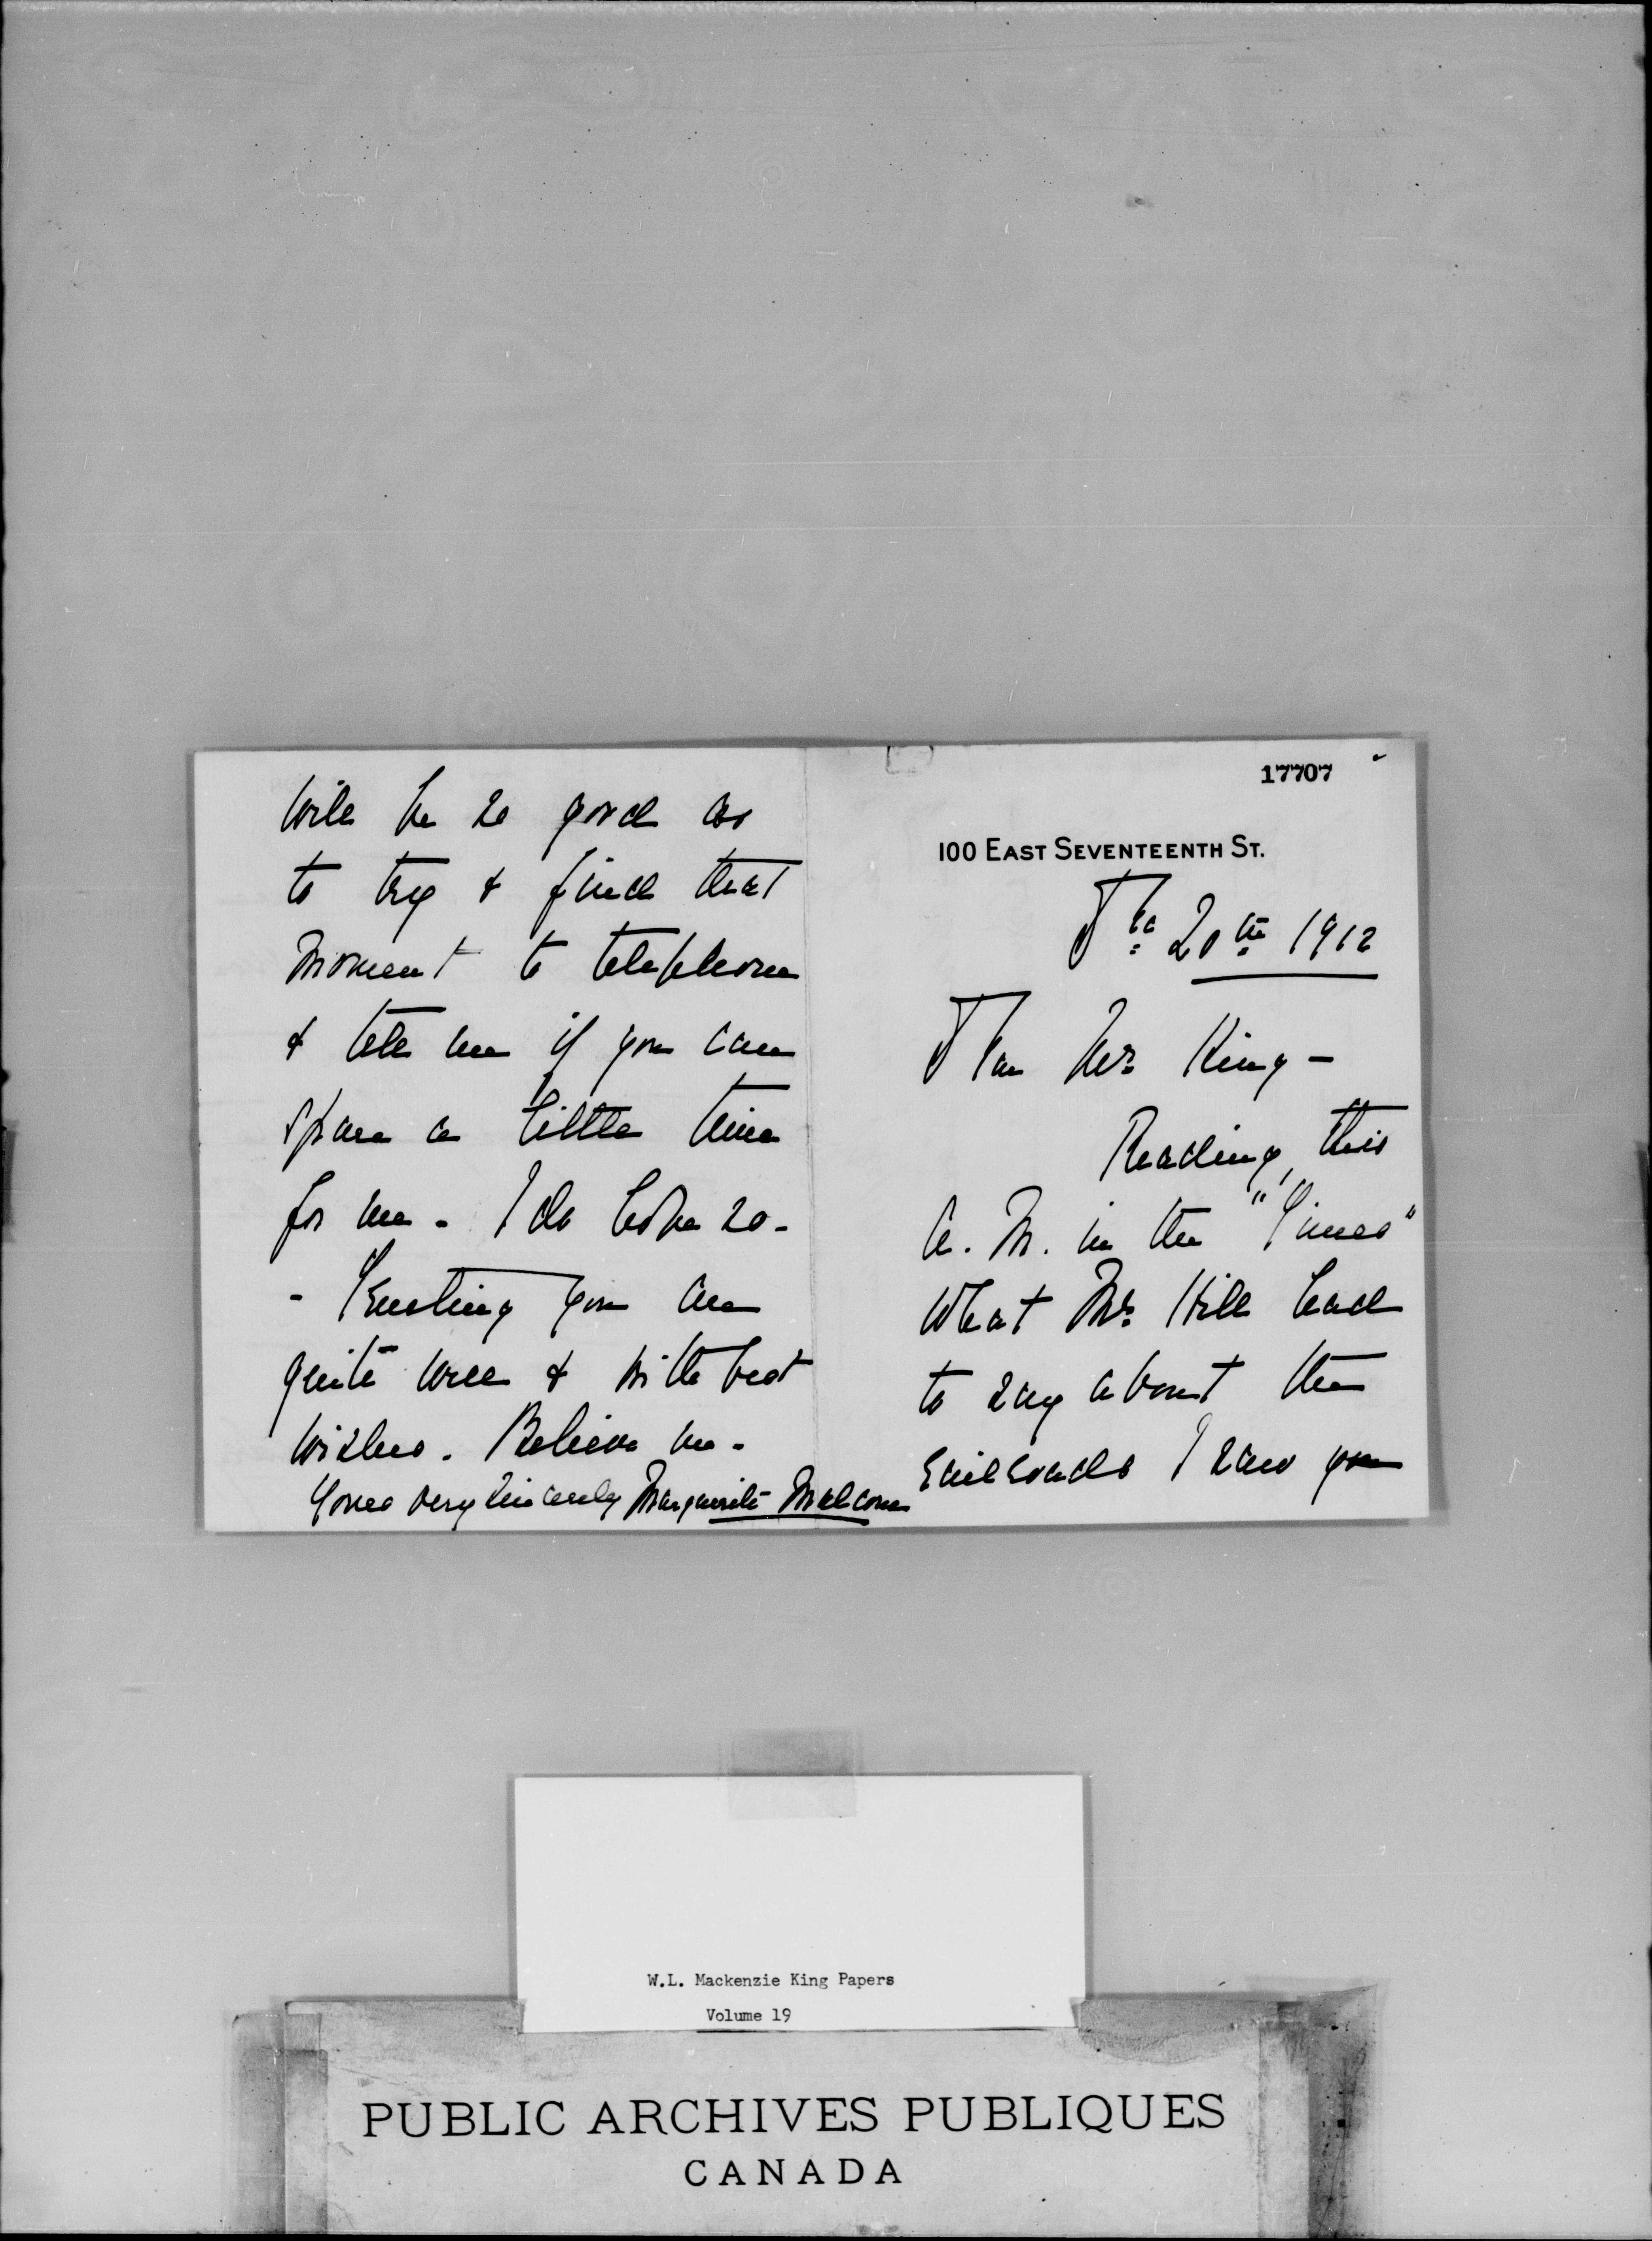 17707
100 EAST SEVENTEENTH ST.
Dec 20th 1912
Dear Mr. King –
Reading this
A. M. in the "Times"
what Mr. Hill had
to say about the
railroads I saw you
will be so good as
to try & find that
moment to telephone
& tell me if you can
spare a little time
for me - I do hope so -
- Trusting you are
quite well & with best
wishes. Believe me -
Yours very sincerely Marguerite Malcom
W.L. Mackenzie King Papers
Volume 19
PUBLIC ARCHIVES PUBLIQUES
CANADA